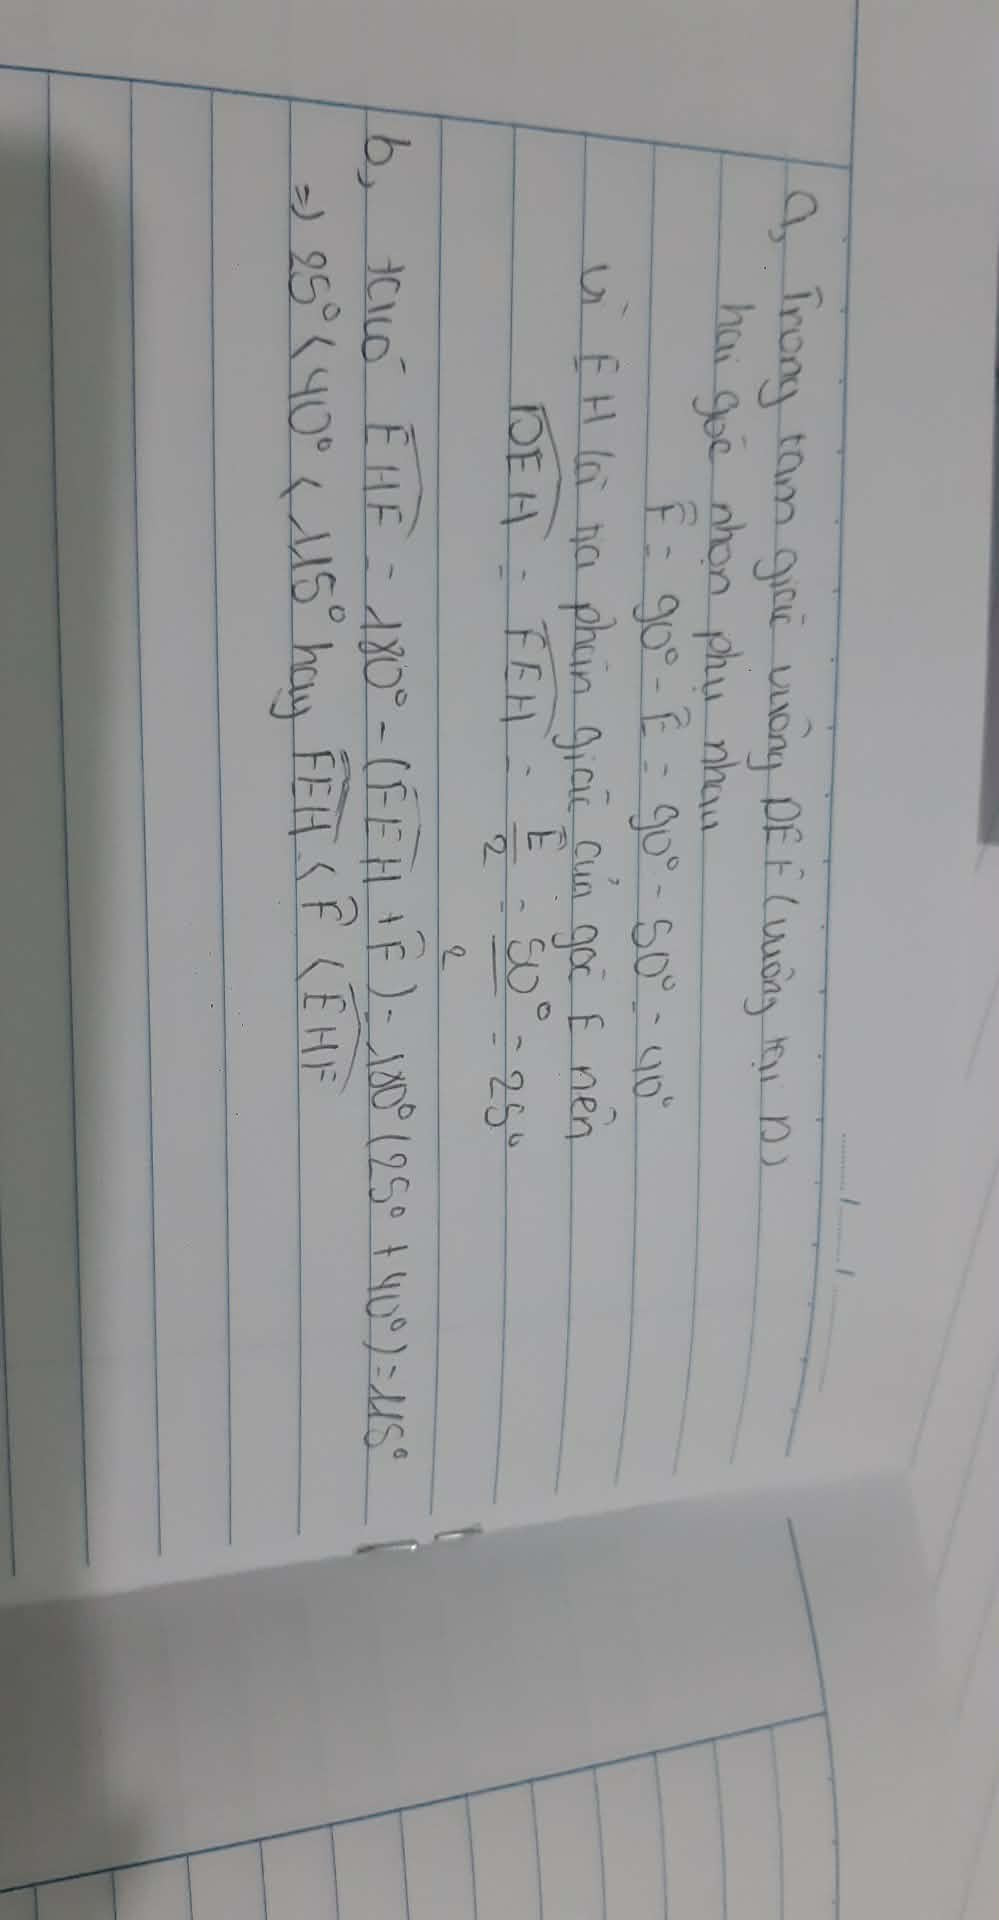 a, Trong tam giác vuông DEF (vuông tại D)
hai góc nhọn phụ nhau
F̂ = 90° - Ê = 90° - 50° = 40°
Vì EH là tia phân giác của góc E nên
DEH = FEH = Ê/2 = 50°/2 = 25°
b, ta có EHF = 180° - (FEH + F̂) = 180° (25° + 40°) = 115°
=> 25° < 40° < 115° hay FEH < F̂ < EHF